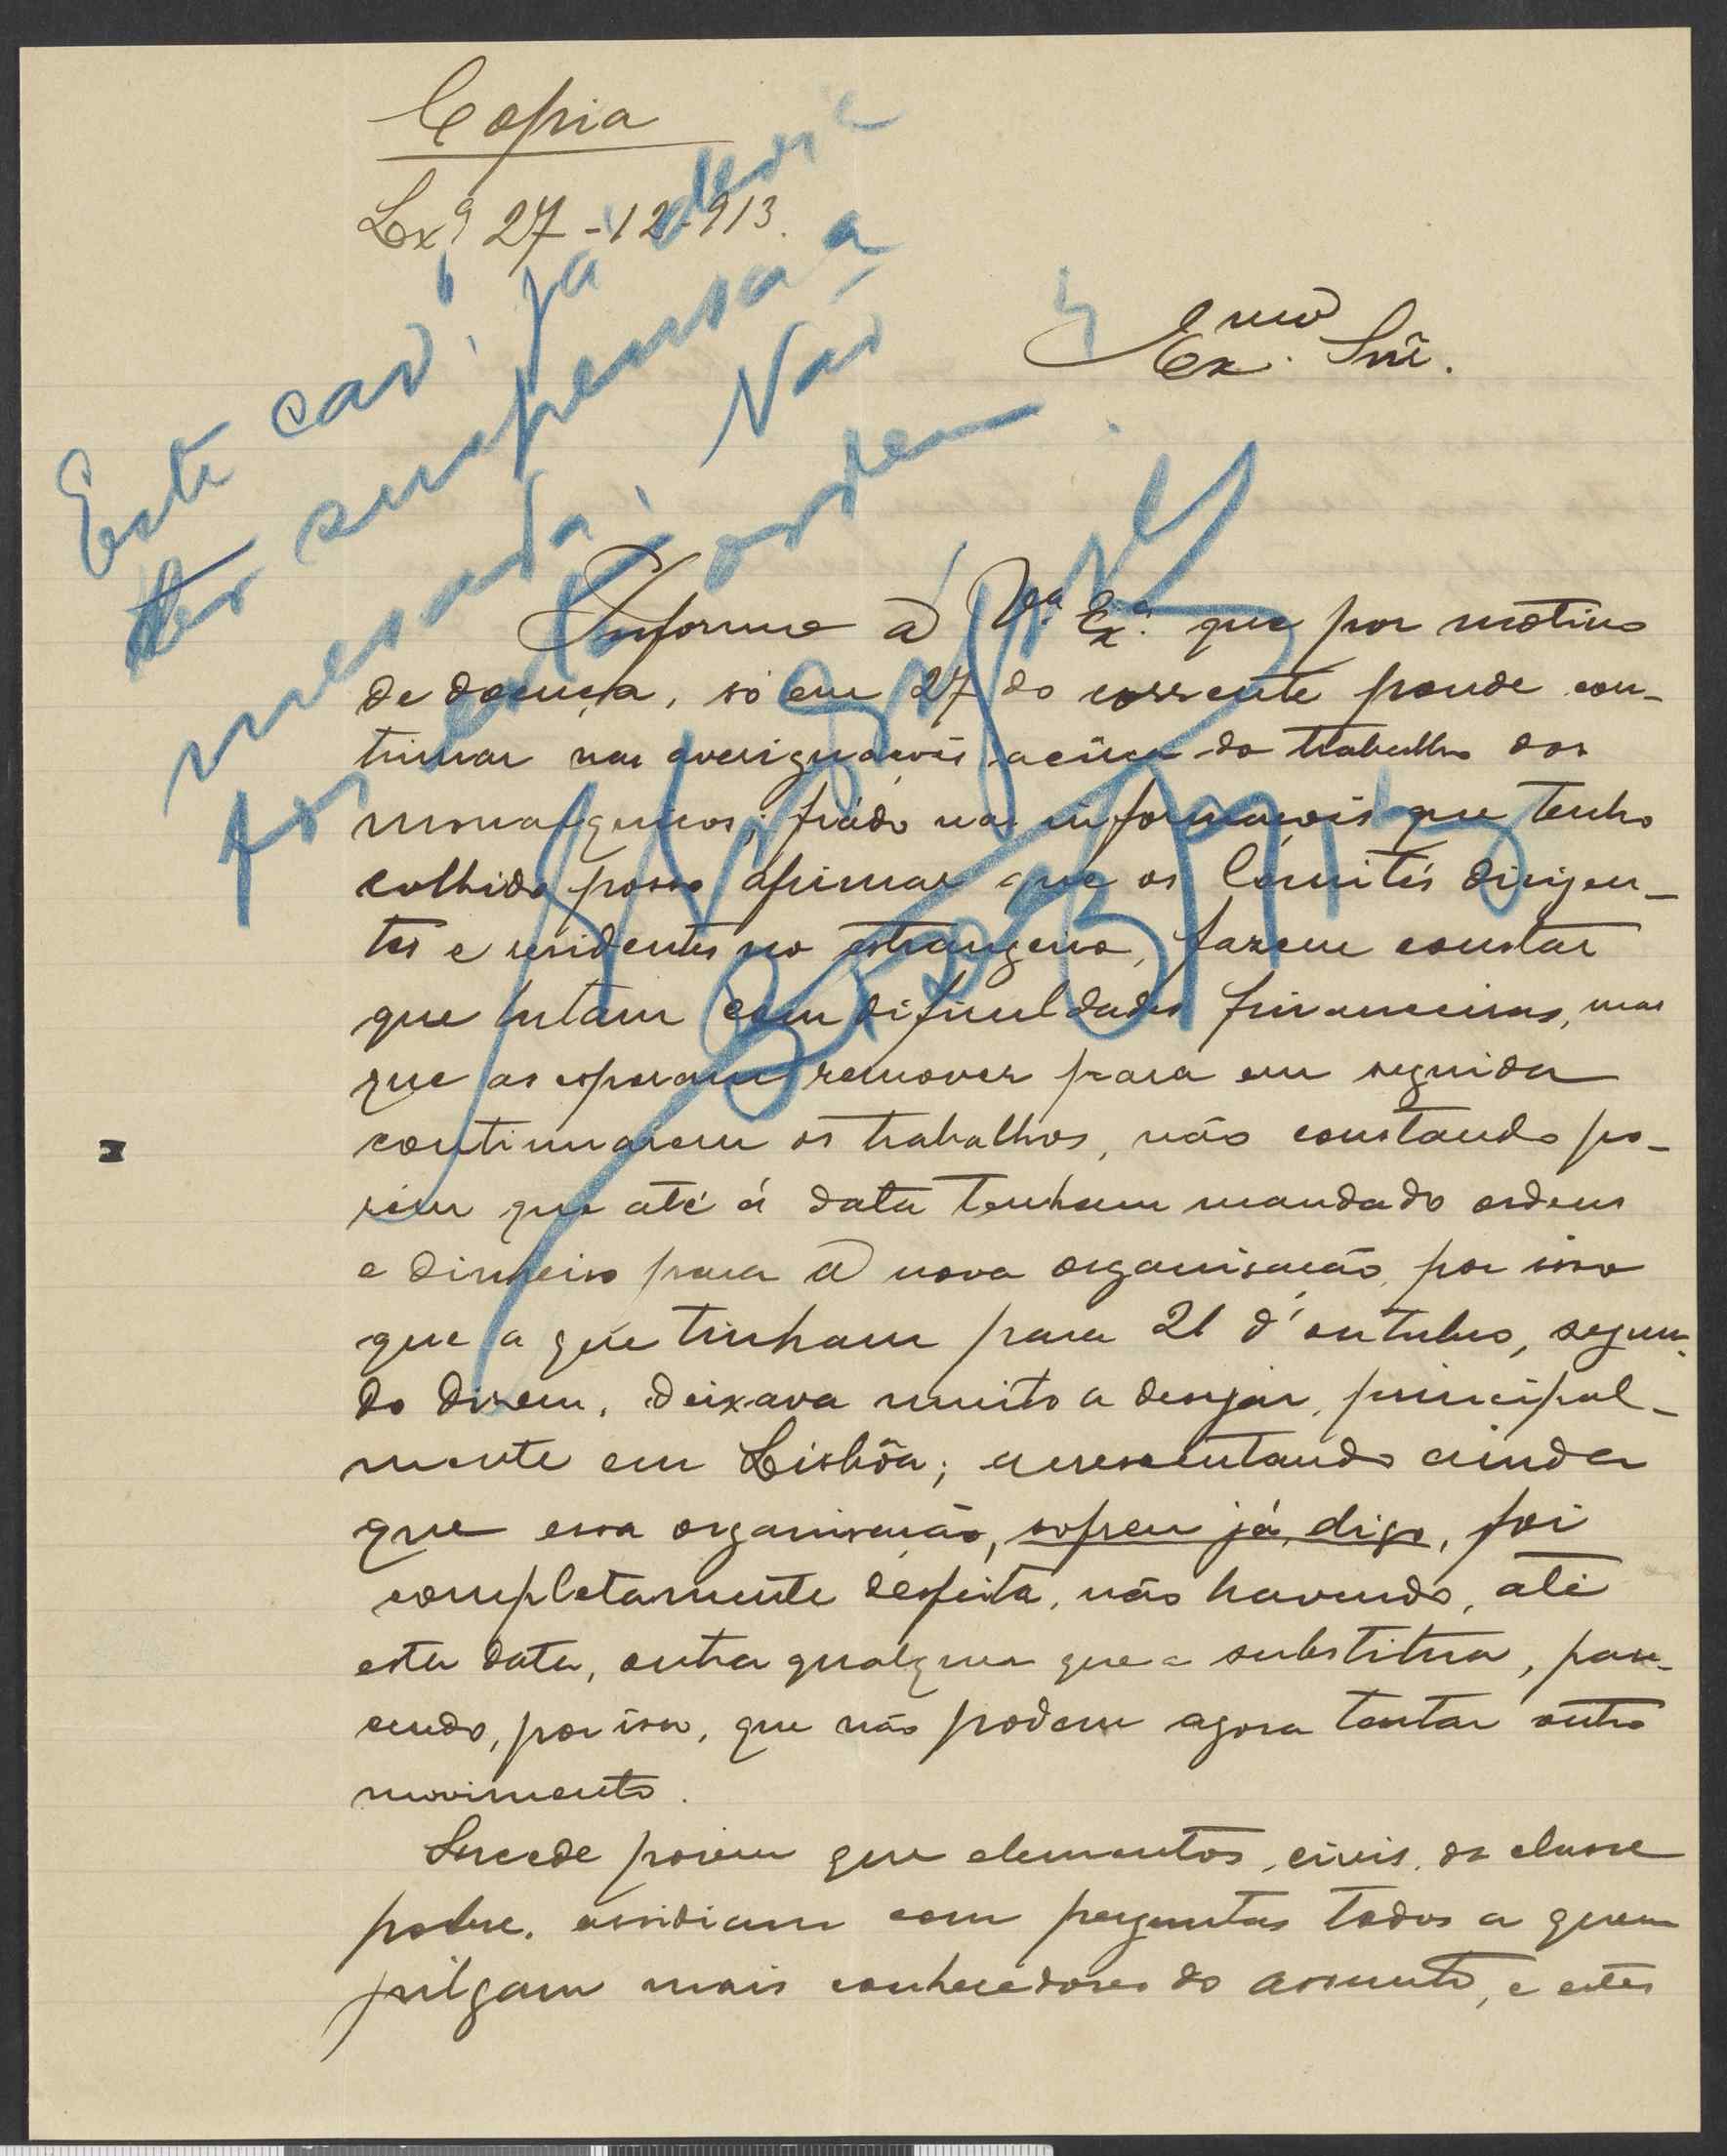 Copia
Lxª 27-12-913.
Exmo Snr.
Este caso já devia
ter suspensa a
mesada. Não
for esta ordem.
Informo a Vª Exª que por motivo
de doença, só em 27 do corrente poude con-
tinuar nas averiguações acêrca do trabalho dos
monarquicos; fiádo nas informações que tenho
colhido posso afirmar que os Comités dirigen-
tes e residentes no estrangeiro, fazem constar
que lutam com dificuldades financeiras, mas
que as esperam remover para em seguida
continuarem os trabalhos, não constando po-
rém que até á data tenham mandado ordens
e dinheiro para a nova organisação, por isso
que a que tinham para 21 d'outubro, segun-
do dizem, deixava muito a desejar, principal-
mente em Lisbôa; acrescentando ainda
que essa organisação, sofreu já, digo, foi
completamente desfeita, não havendo, até
esta data, outra qualquer que a substitua, pare-
cendo, por isso, que não podem agora tentar outro
movimento.
Sucede porém que elementos, civis, da classe
pobre, assidiam com perguntas todos a quem
julgam mais conhecedores do assunto, e estes